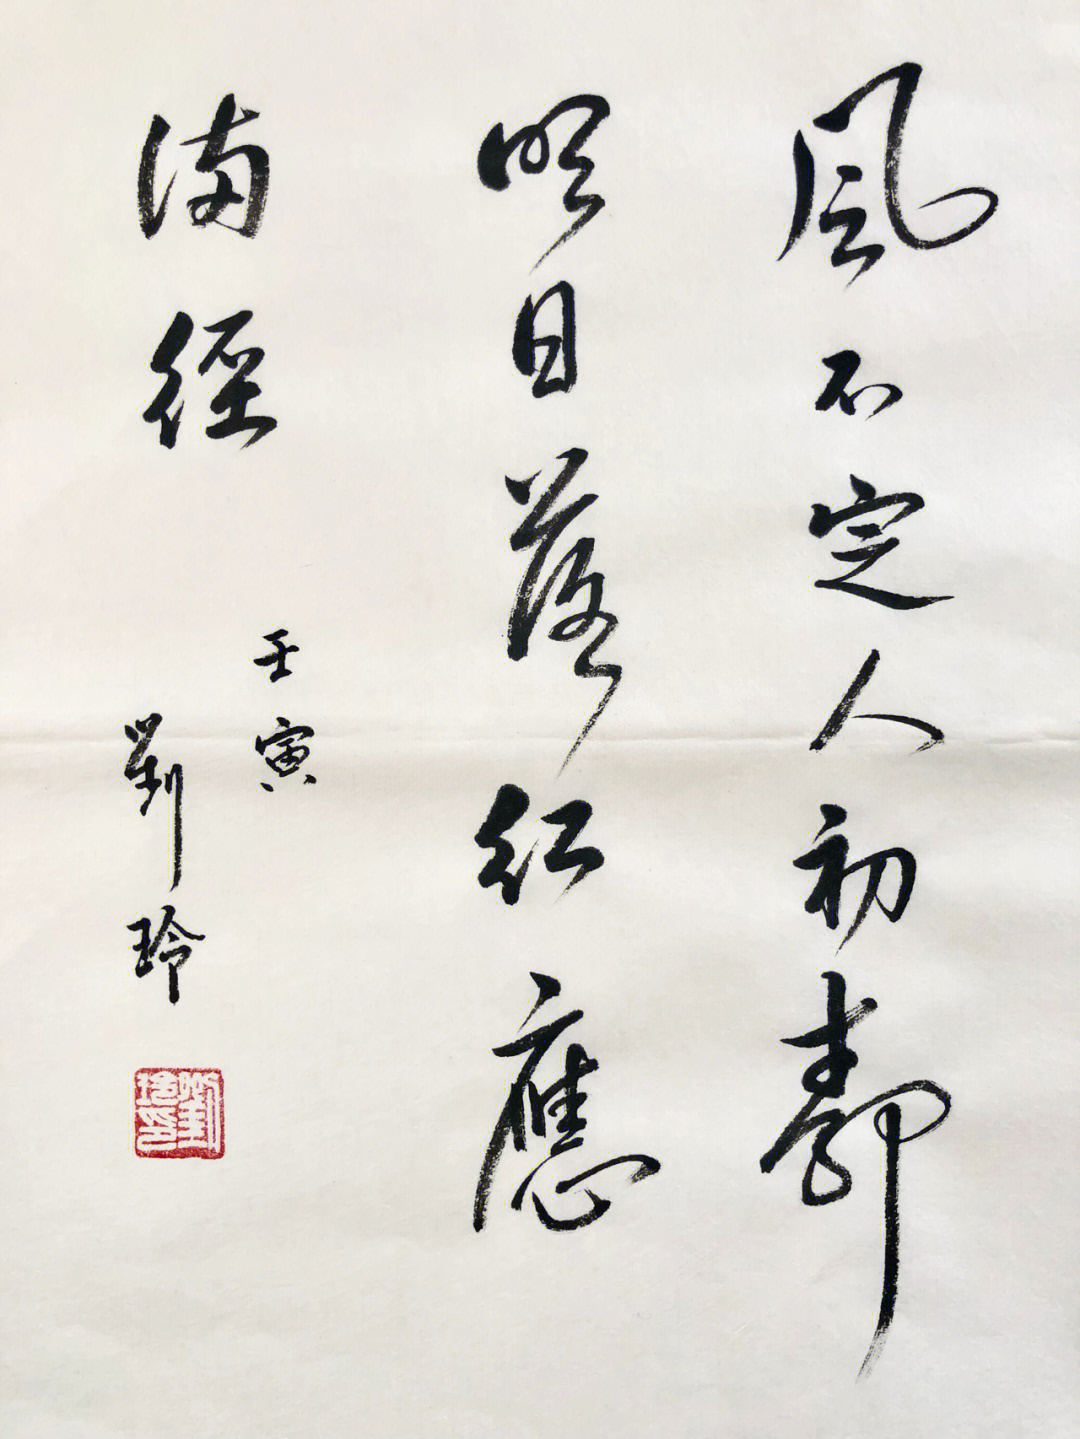 風不定人初靜
明日落紅應
滿徑
壬寅
劉玲
劉玲印